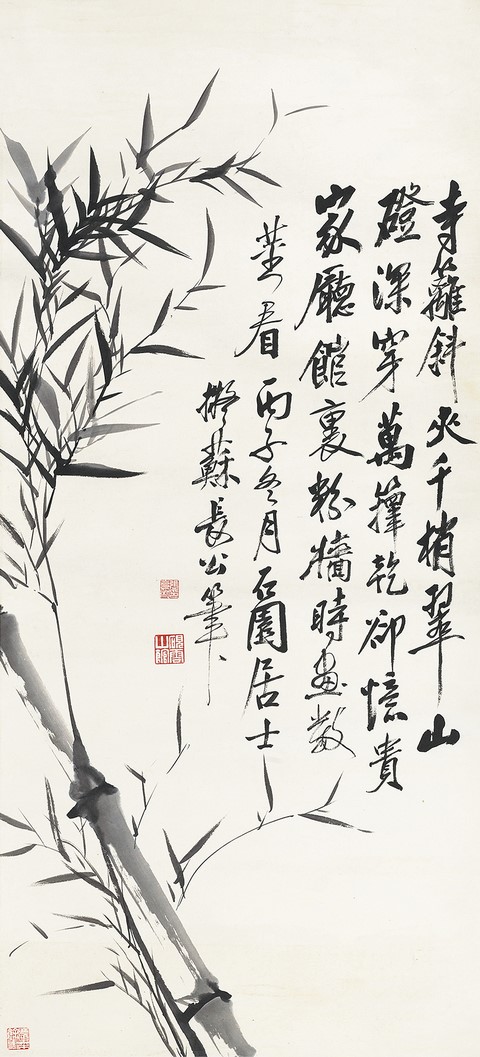 寺籬斜夾千梢翠山
磴深穿萬籜乾卻憶貴
家廳館裏粉牆時畫數
莖看 丙子冬月石園居士
擬蘇長公筆